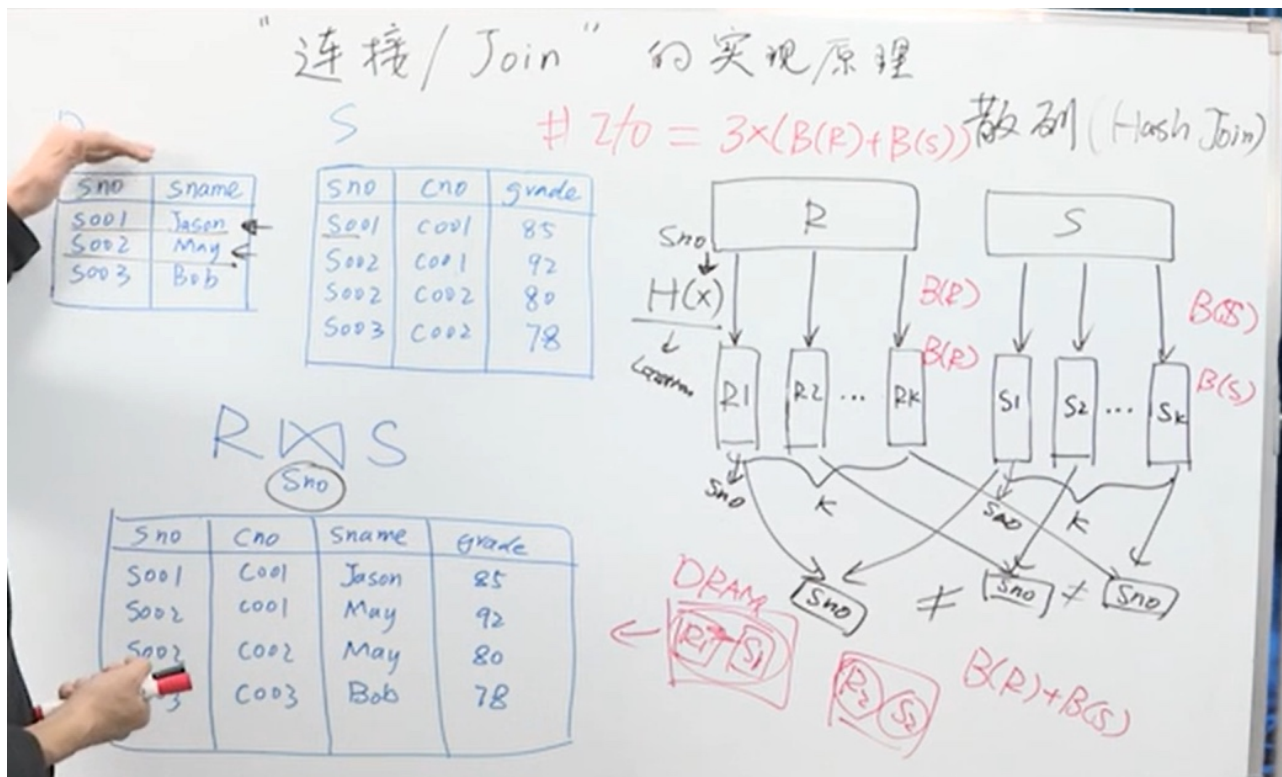 "连接/Join"的实现原理
S
# I/O = 3×(B(R)+B(S))
散列(Hash Join)
sno sname
S001 Jason
S002 May
S003 Bob
sno cno grade
S001 C001 85
S002 C001 92
S002 C002 80
S003 C002 78
R ⋈ S
Sno
Sno Cno Sname grade
S001 C001 Jason 85
S002 C001 May 92
S002 C002 May 80
3 C003 Bob 78
R S
Sno
H(x)
B(R) B(S)
B(R) B(S)
R1 R2 ... RK S1 S2 ... SK
Sno K Sno K
Sno ≠ Sno ≠ Sno
DRAM
R1 S1
R2 S2
B(R)+B(S)